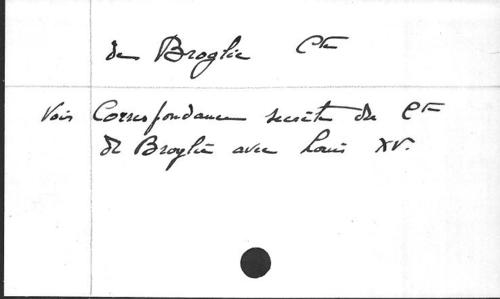 de Broglie Cte
Voir Correspondance secrète du Cte
de Broglie avec Louis XV.